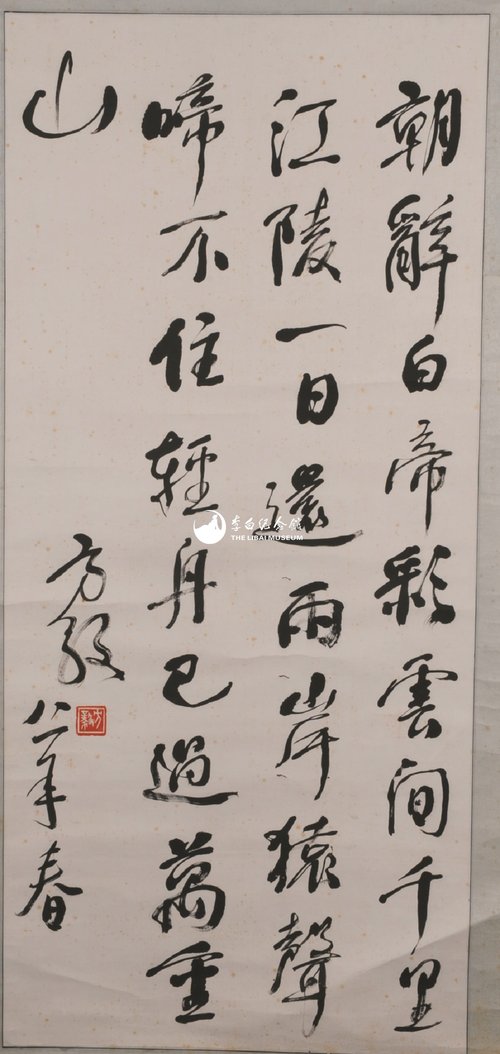 朝辭白帝彩雲間千里
江陵一日還兩岸猿聲
啼不住輕舟已過萬重
山
方毅
八二年春
方毅
李白纪念馆
THE LIBAI MUSEUM